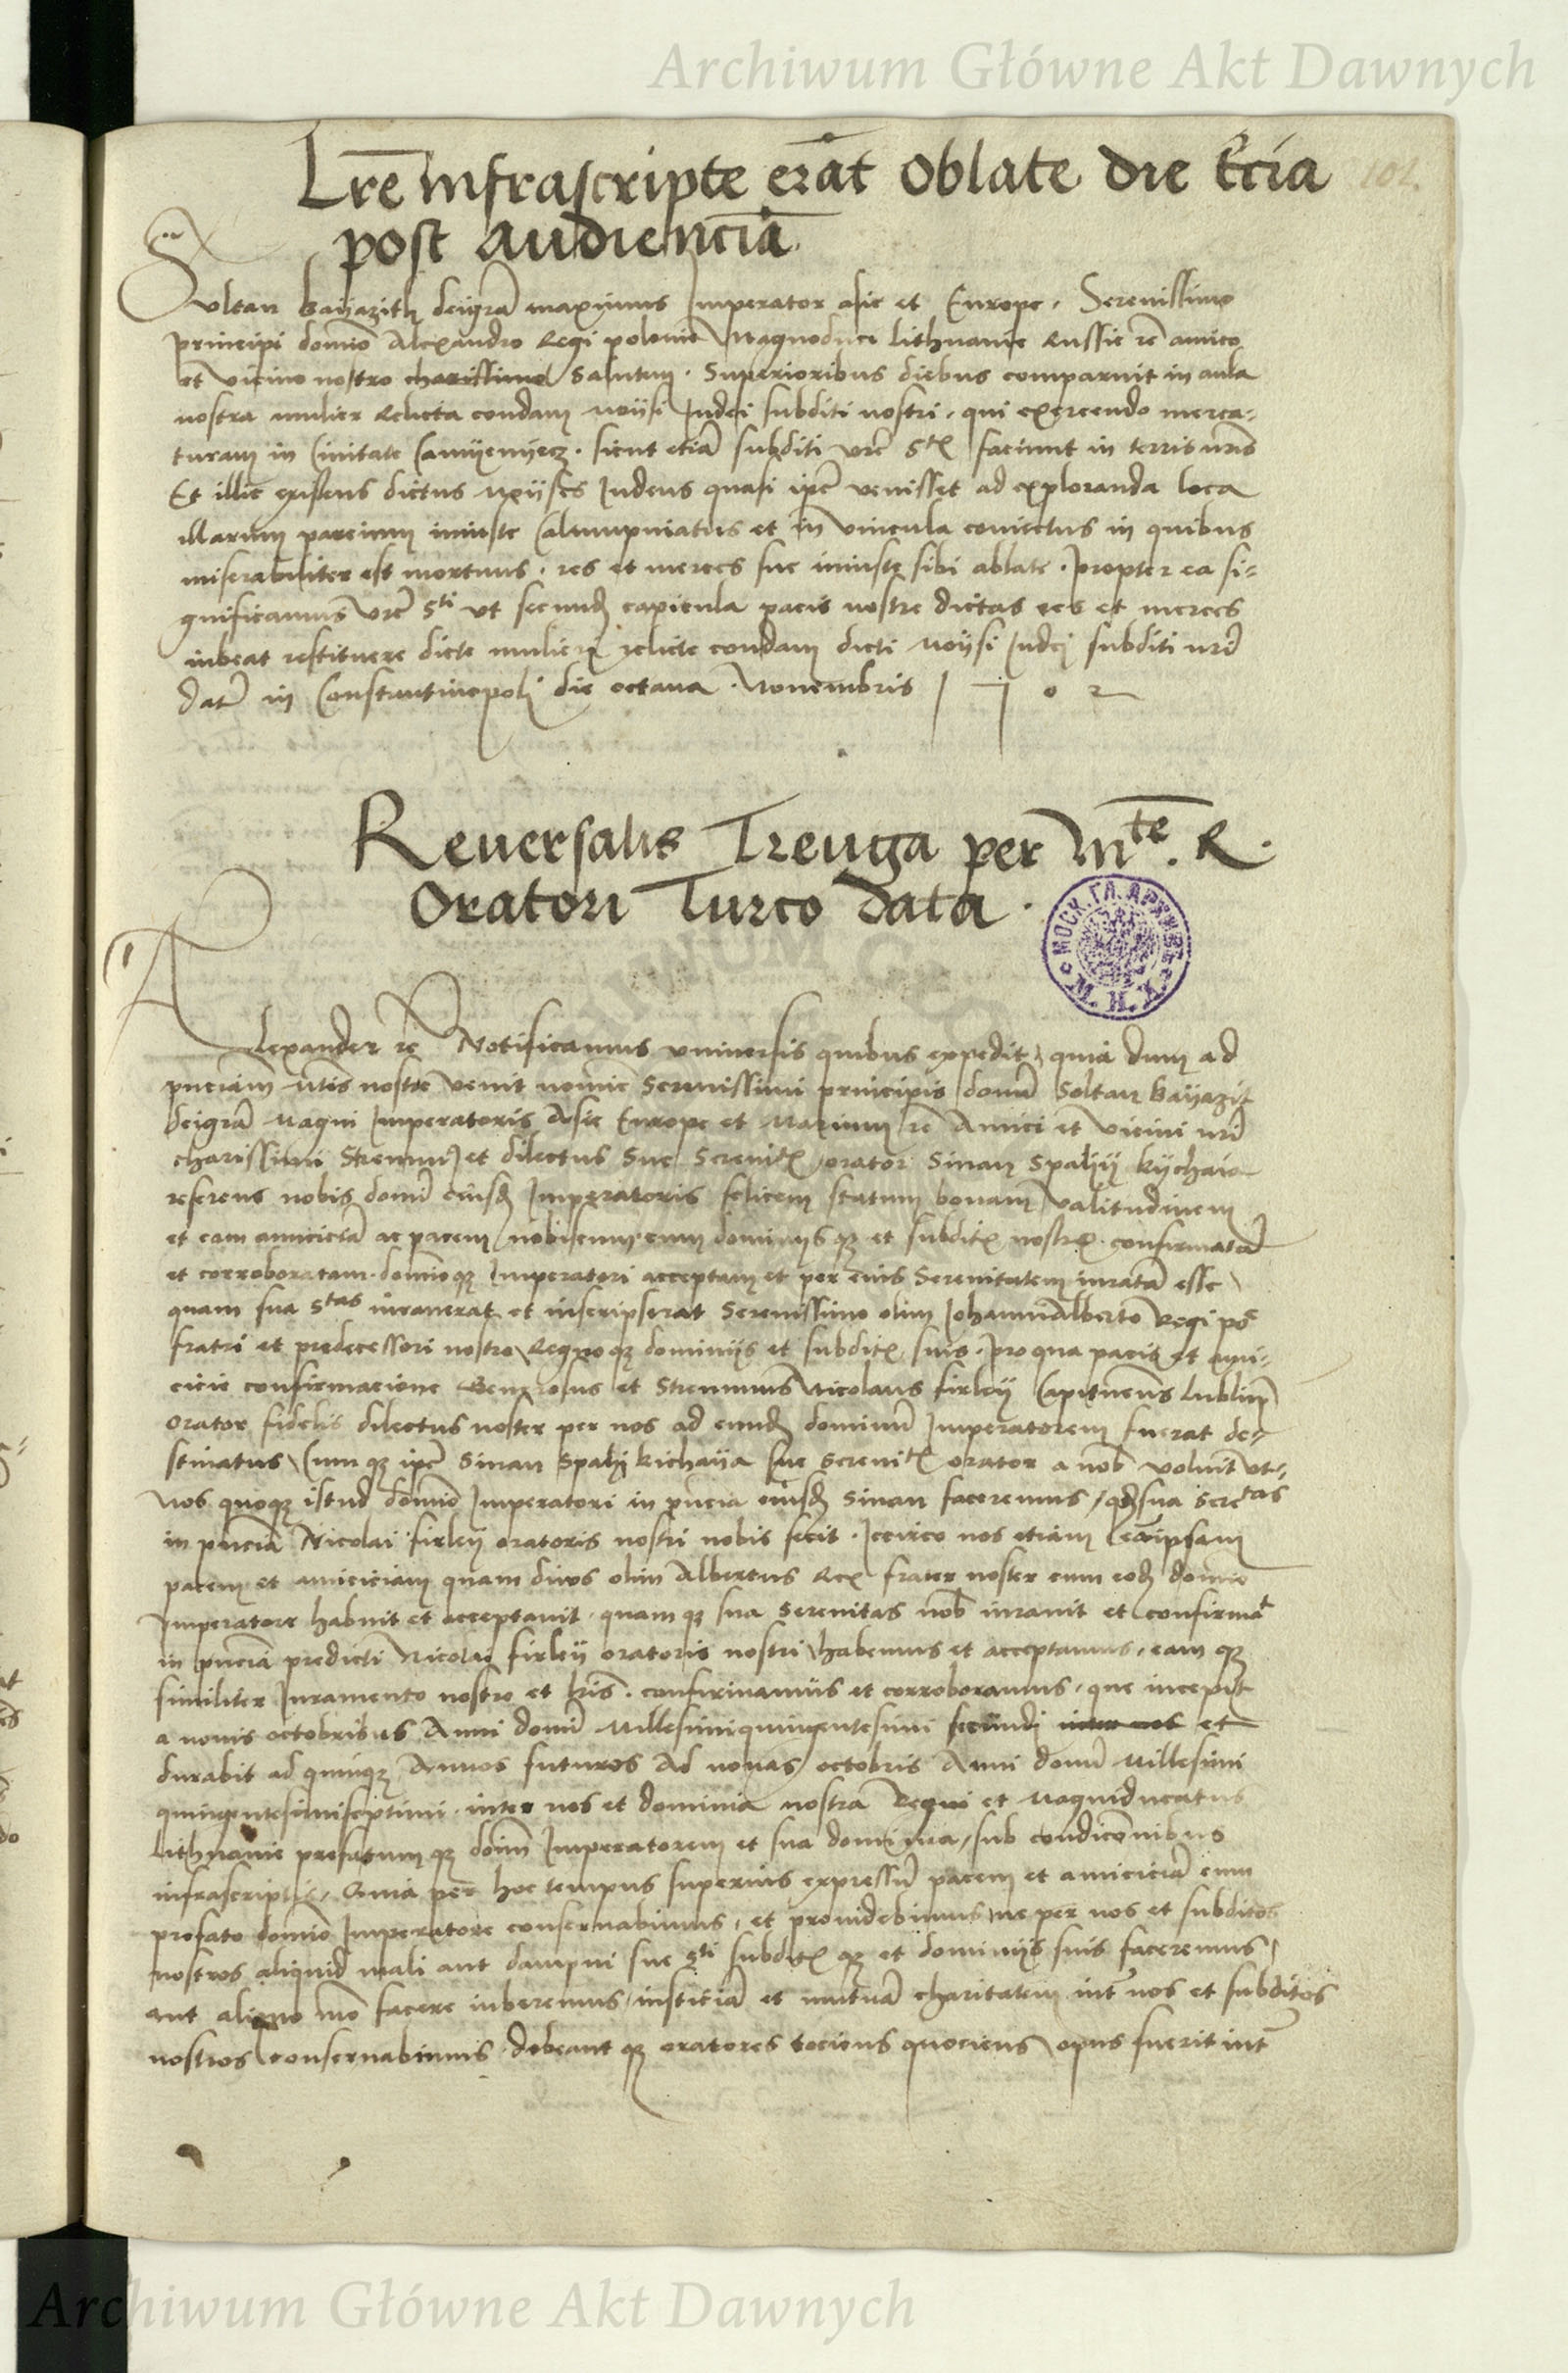 Archiwum Główne Akt Dawnych
Lrē infrascripte erāt oblate die t̄cia
102.
post audienciā
Sultan Bayazith deigrā maximus Imperator asie et Europe. Serenissimo
principi domīo Alexandro Regi polonie Magnoduci Lithuanie Russie rē amico
et vicino nostro charissimo salutem. Superioribus diebus comparuit in aula
nostra mulier relicta condam Moysi Iudei subditi nostri, qui exercendo merca-
turam in Civitate Camyenyecz. sicut etiā subditi vrē Stꝭ faciunt in terris nrīs
Et illic existens dictus Moyses Iudeus quasi ipē venisset ad exploranda loca
illarum parcium iniuste Calumpniatus et in vincula coniectus in quibus
miserabiliter est mortuus. res et merces sue iniuste sibi ablate. Propter ea si-
gnificamus vrē Sti ut secundū capitula pacis nostre dictas res et merces
iubeat restituere dicte mulieri relicte condam dicti Moysi Iudei subditi nrī
Datē in Constantinopoli die octava Novembris 1502
Reversalis Treuga per Mte. R.
Oratori Turco data.
МОСК. ГЛ. АРХИВЪ М. И. Д.
Alexander rē Notificamus universis quibus expedit, quia dum ad
pnciam Mtis nostre venit nomīe Serenissimi principis domī Soltan Bayazit
deigrā Magni Imperatoris Asie Europe et Marium rē Amici et vicini nrī
charissimi Strenuus et dilectus Sue Serenitꝭ orator Sinan Spahy Kychaia
referens nobis domī eiusdē Imperatoris felicem statum bonam valitudinem
et eam amiciciā ac pacem nobiscum cum dominijs qꝫ et subditꝭ nostrꝭ confirmatā
et corroboratam. domīoqꝫ Imperatori acceptam et per eius Serenitatem iuratā esse
quam sua Stas iuraverat et inscripserat Serenissimo olim Iohanni Alberto Regi po
fratri et predecessori nostro Regnoqꝫ dominijs et subditꝭ suis. Pro qua pacis et ami-
cicie confirmacione Generosus et Strenuus Nicolaus firley Capitaneus Lublinꝭ
orator fidelis dilectus noster per nos ad eundē dominū Imperatorem fuerat de-
stinatus Cum qꝫ ipē Sinan Spahy Kichaya Sue Serenitꝭ orator a nob voluit ut
Nos quoqꝫ istud domīo Imperatori in pncia eiusdē Sinan faceremus, qd sua Seretas
in pnciā Nicolai firley oratoris nostri nobis fecit. Iccirco nos etiam eāipsam
pacem et amiciciam quam divus olim Albertus Rex frater noster cum eodē domīo
Imperatore habuit et acceptavit. quam qꝫ sua Serenitas nob iuravit et confirmat
in pnciā predicti Nicolai firley oratoris nostri habemus et acceptamus, eam qꝫ
similiter Iuramento nostro et lrīs. confirmamus et corroboramus, que incepit
a nonis octobribus Anni domī Millesimiquingentesimi secundi inter nos et
durabit ad quinqꝫ Annos futuros Ad nonas octobris Anni domī Millesimi
quingentesimiseptimi. inter nos et dominia nostra Regni et Magniducatus
Lithuanie prefatum qꝫ domī Imperatorem et sua dominia, sub condicōnibus
infrascriptis, Quia per hoc tempus superius expressū pacem et amiciciā cum
prefato domīo Imperatore conservabimus, et providebimus ne per nos et subditos
nostros aliquid mali aut dampni sue Sti subditꝭ qꝫ et dominijs suis faceremus
aut aliquo mō facere iuberemus, iusticiā et mutuā charitatem int nos et subditos
nostros conservabimus. debeant qꝫ oratores tociens quociens opus fuerit int
Archiwum Główne Akt Dawnych